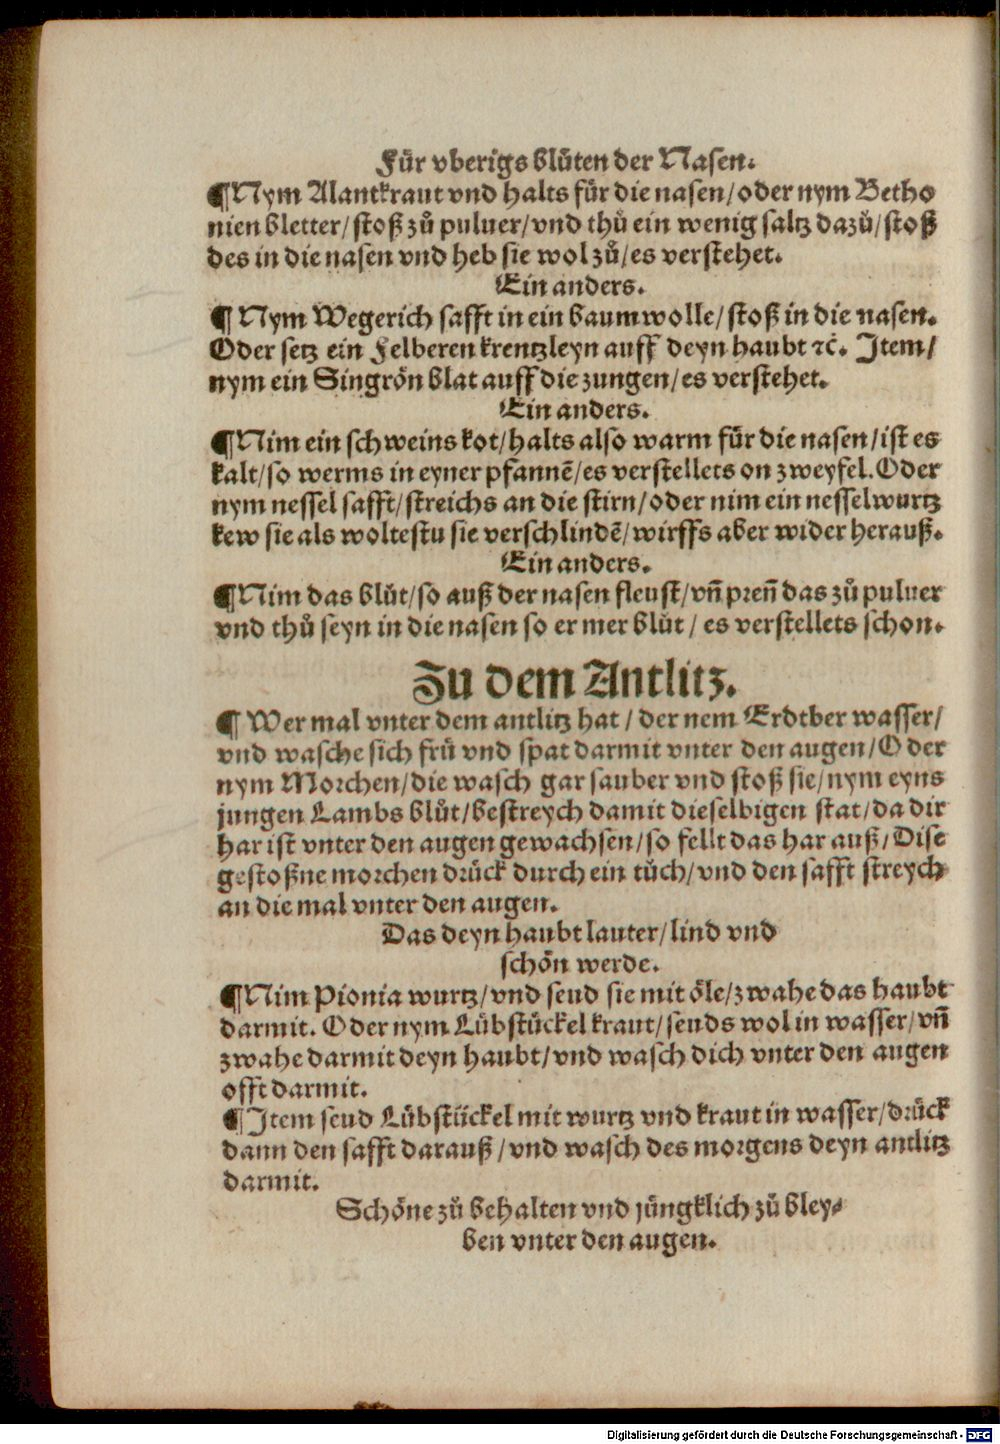 Für vberigs blůten der Nasen.
¶Nym Alantkraut vnd halts für die nasen/oder nym Betho
nien bletter/stoß zů puluer/vnd thů ein wenig saltz dazů/stoß
des in die nasen vnd heb sie wol zů/es verstehet.
Ein anders.
¶ Nym Wegerich safft in ein baumwolle/stoß in die nasen.
Oder setz ein Felberen krentzleyn auff deyn haubt ⁊c̃. Jtem/
nym ein Singrön blat auff die zungen/es verstehet.
Ein anders.
¶Nim ein schweins kot/halts also warm für die nasen/ist es
kalt/so werms in eyner pfannẽ/es verstellets on zweyfel. Oder
nym nessel safft/streichs an die stirn/oder nim ein nesselwurtz
kew sie als woltestu sie verschlindẽ/wirffs aber wider herauß.
Ein anders.
¶Nim das blůt/so auß der nasen fleust/vñ preñ das zů puluer
vnd thů seyn in die nasen so er mer blůt/es verstellets schon.
Zu dem Antlitz.
¶ Wer mal vnter dem antlitz hat/der nem Erdtber wasser/
vnd wasche sich frü vnd spat darmit vnter den augen/Oder
nym Morchen/die wasch gar sauber vnd stoß sie/nym eyns
jungen Lambs blůt/bestreych damit dieselbigen stat/da dir
har ist vnter den augen gewachsen/so fellt das har auß/Dise
gestoßne morchen drück durch ein tůch/vnd den safft streych
an die mal vnter den augen.
Das deyn haubt lauter/lind vnd
schön werde.
¶Nim Pionia wurtz/vnd seud sie mit öle/zwahe das haubt
darmit. Oder nym Lübstückel kraut/seuds wol in wasser/vñ
zwahe darmit deyn haubt/vnd wasch dich vnter den augen
offt darmit.
¶Jtem seud Lübstückel mit wurtz vnd kraut in wasser/drück
dann den safft darauß/vnd wasch des morgens deyn antlitz
darmit.
Schöne zů behalten vnd jüngklich zů bley⸗
ben vnter den augen.
Digitalisierung gefördert durch die Deutsche Forschungsgemeinschaft - DFG